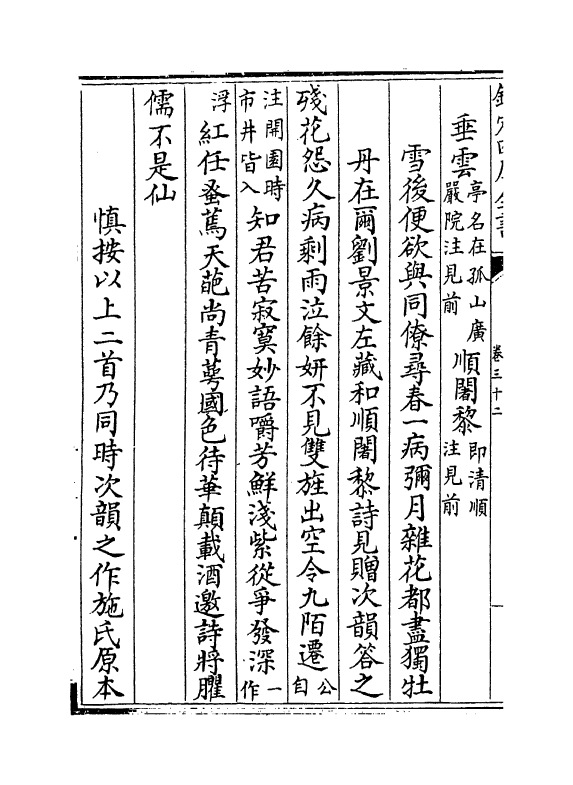 欽定四庫全書
卷三十二
垂雲亭名在孤山廣嚴院注見前順闍黎即清順注見前
雪後便欲與同僚尋春一病彌月雜花都盡獨牡
丹在爾劉景文左藏和順闍黎詩見贈次韻答之
殘花怨久病剩雨泣餘妍不見雙旌出空令九陌遷公自
注開園時市井皆入知君苦寂寞妙語嚼芳鮮淺紫從爭發深一作
浮紅任蚤蔫天葩尚青萼國色待華顛載酒邀詩將臞
儒不是仙
慎按以上二首乃同時次韻之作施氏原本